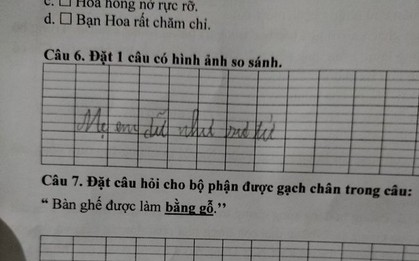 c. ☐ Hoa hồng nở rực rỡ.
d. ☐ Bạn Hoa rất chăm chỉ.
Câu 6. Đặt 1 câu có hình ảnh so sánh.
Mẹ em dữ như sư tử
Câu 7. Đặt câu hỏi cho bộ phận được gạch chân trong câu:
“ Bàn ghế được làm bằng gỗ.”